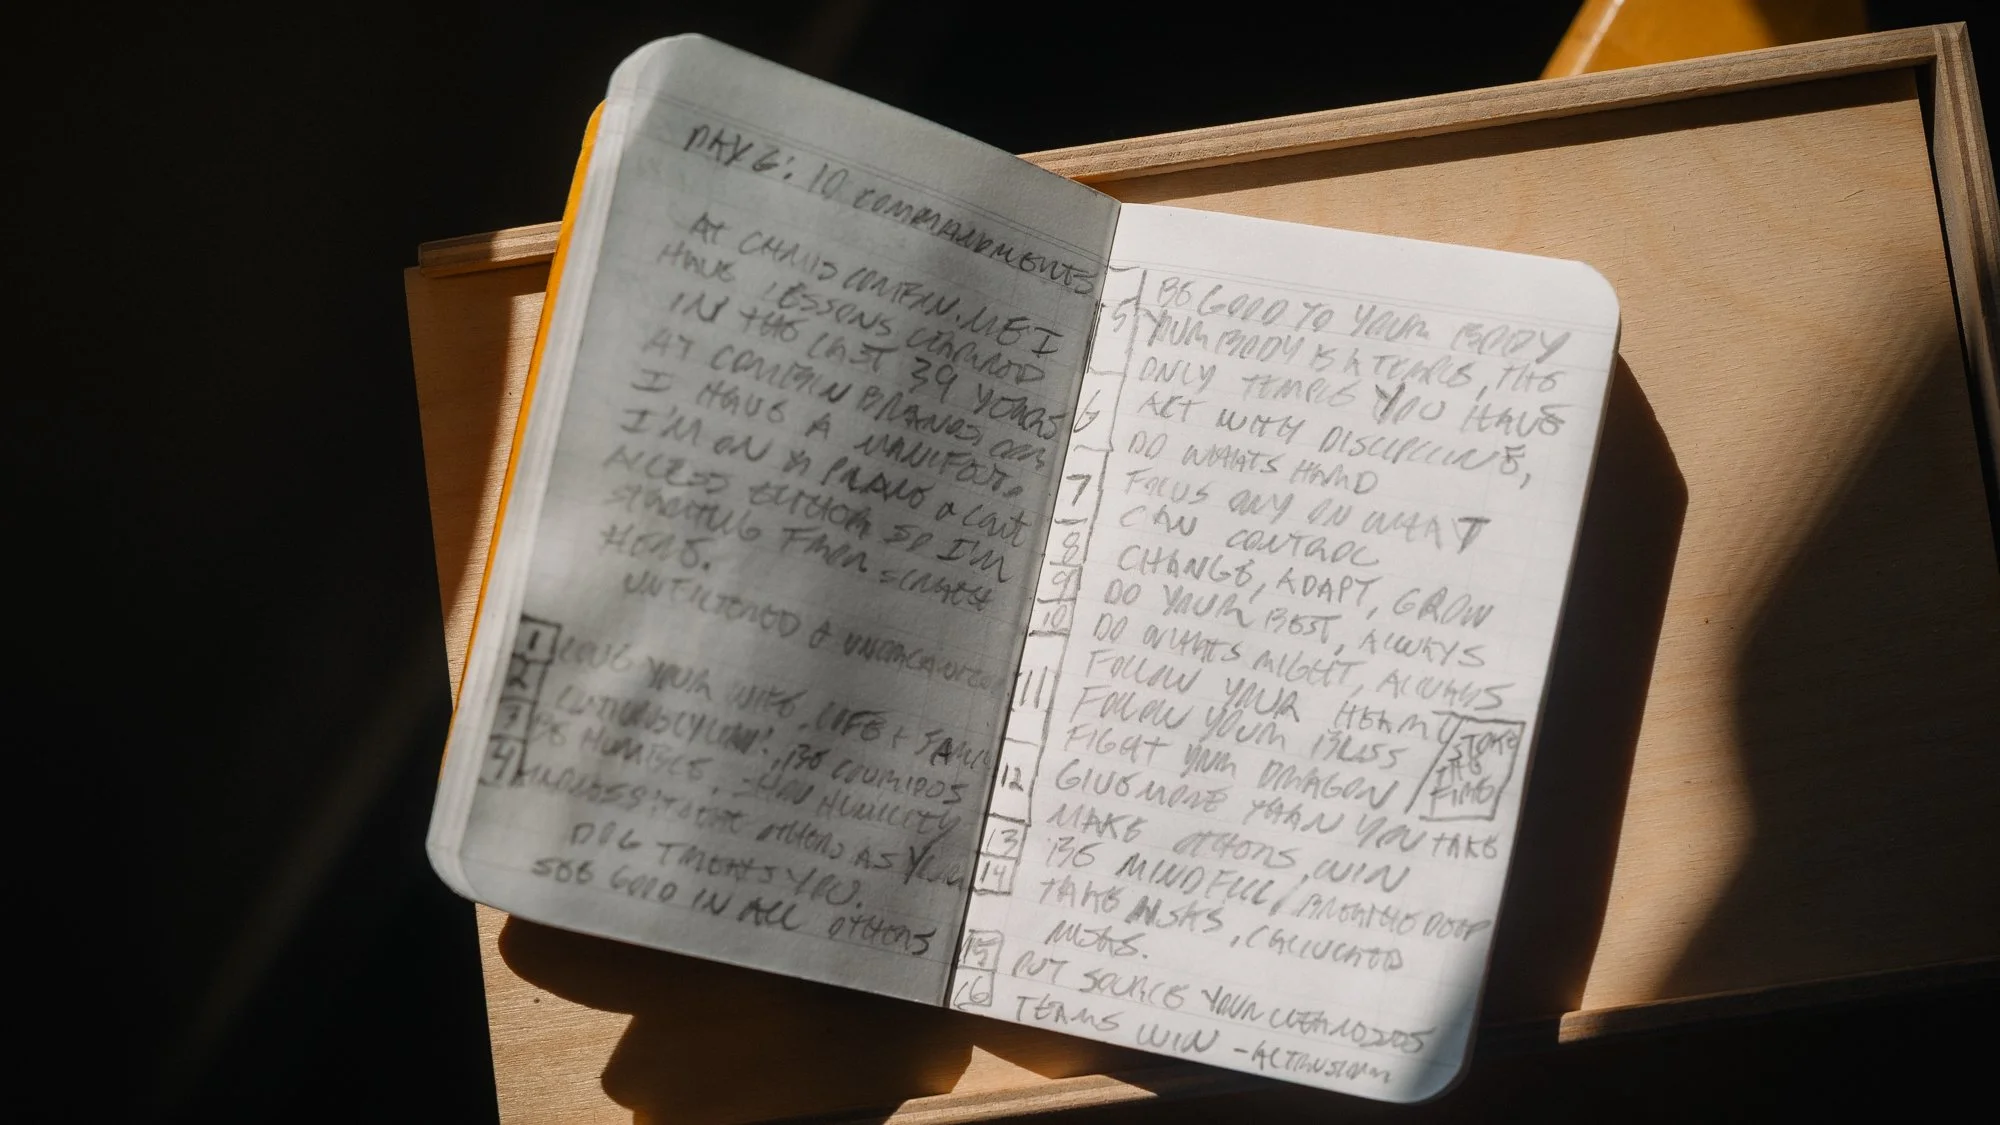 DAY 6: 10 COMMANDMENTS
AT CHRIS COMFRN.ME I
HAVE LESSONS LEARNED
IN THE LAST 39 YEARS
AT COMFRN BRANDS.COM
I HAVE A MANIFEST.
I'M ON A PLANE & CAN'T
ACCESS EITHER SO I'M
STARTING FROM SCRATCH
HERE.
UNFILTERED &
1 LOVE YOUR WIFE, LIFE + FAMILY
2 BE
3 BE HUMBLE, SHOW HUMILITY
4 OTHERS AS YOUR
DOG TREATS YOU.
SEE GOOD IN ALL OTHERS
5 BE GOOD TO YOUR BODY
YOUR BODY IS A TEMPLE, THE
ONLY TEMPLE YOU HAVE
6 ACT WITH DISCIPLINE,
DO WHATS HARD
7 FOCUS ONLY ON WHAT
CAN CONTROL
8 CHANGE, ADAPT, GROW
9 DO YOUR BEST, ALWAYS
10 DO WHATS RIGHT, ALWAYS
11 FOLLOW YOUR HEART
FOLLOW YOUR BLISS
FIGHT YOUR DRAGON
STOKE
THE
FIRE
12 GIVE MORE THAN YOU TAKE
MAKE OTHERS WIN
13 BE MINDFUL, BREATHE DEEP
14 TAKE RISKS, CALCULATED
RISKS.
15 OUT SOURCE YOUR WEAKNESSES
16 TEAMS WIN - ALTRUISM